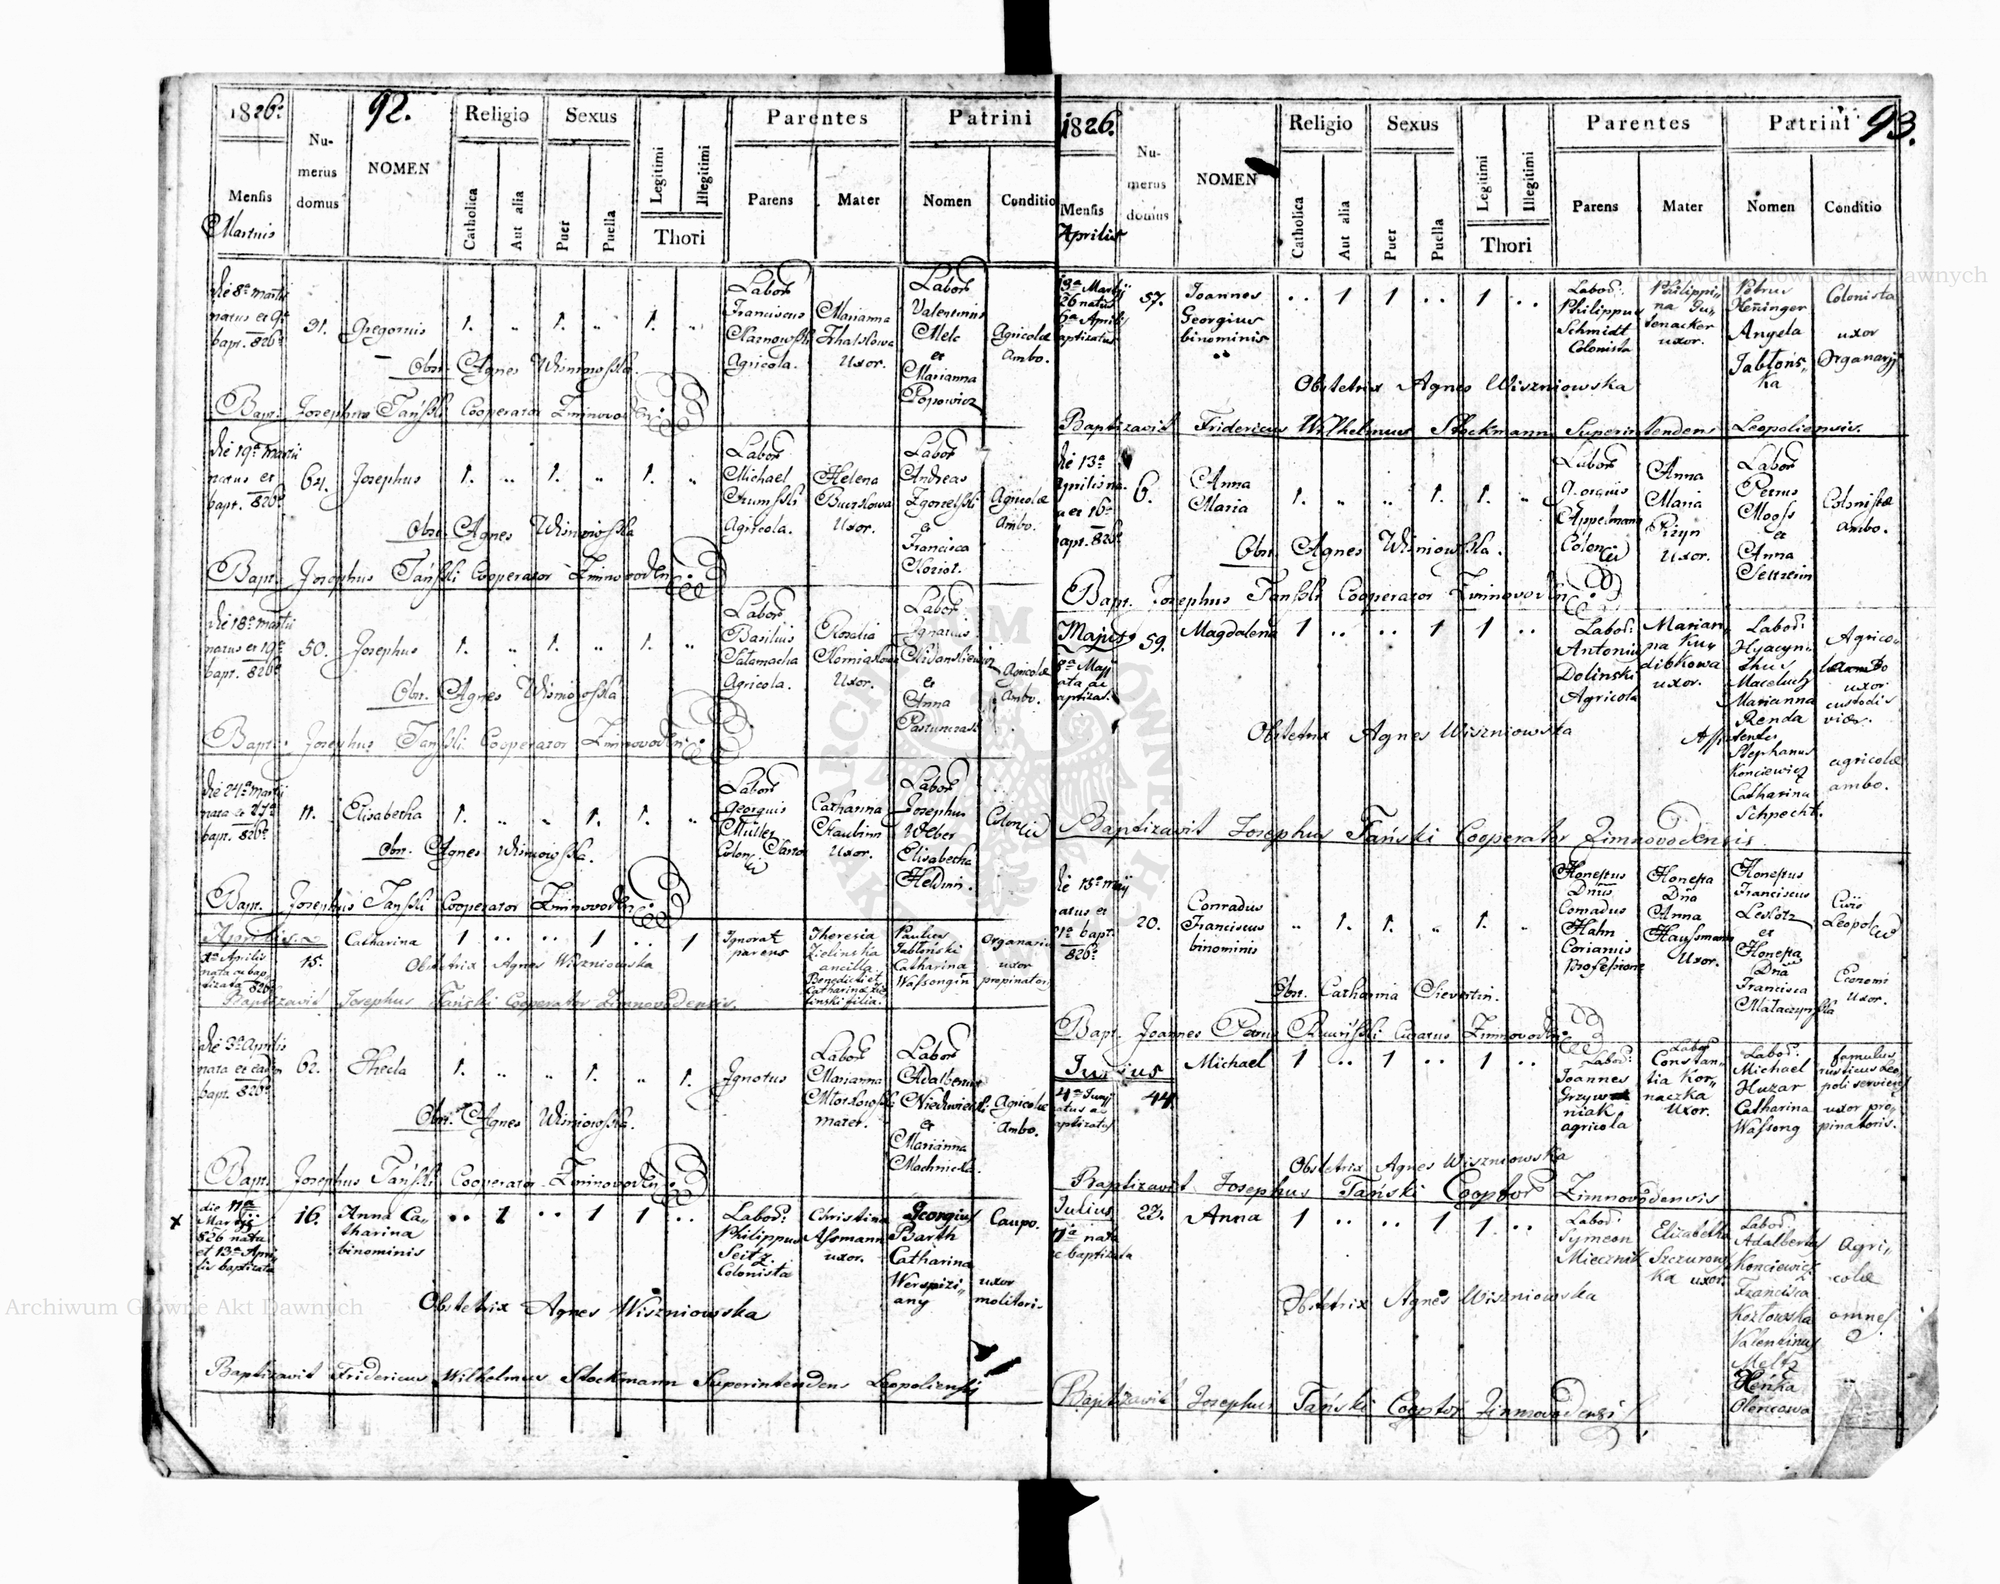 1826.
92.
Numerus domus
NOMEN
Religio
Sexus
Parentes
Patrini
Mensis
Martius
Catholica
Aut alia
Puer
Puella
Legitimi
Illegitimi
Thori
Parens
Mater
Nomen
Conditio
die 8ª martii
natus et 9ª
bapt. 826º
31.
Gregorius
1. „ 1. „ 1. „
Labor
Franciscus
Agricola.
Marianna
Uxor.
Labor
Valentinus
Melc
et
Marianna
Popowicz
Agricolæ
Ambo.
Obst. Agnes Wisniowska.
Bapt. Josephus Tański Cooperator Zimnovoden:
die 19ª martii
natus et
bapt. 826º
64.
Josephus
1. „ 1. „ 1. „
Labor
Michael
Agricola.
Helena
Uxor.
Labor
Andreas
Zgorzelski
et
Francisca
Kozioł.
Agricolæ
Ambo.
Obst. Agnes Wisniowska
Bapt. Josephus Tański Cooperator Zimnovoden:
die 18ª martii
natus et 19ª
bapt. 826º
50.
Josephus
1. „ 1. „ 1. „
Labor
Basilius
Sałamacha
Agricola.
Rosalia
Uxor.
Labor
Ignatius
et
Anna
Agricolæ
Ambo.
Obst. Agnes Wisniowska
Bapt. Josephus Tański Cooperator Zimnovoden:
die 24ª martii
nata et 27ª
bapt. 826º
11.
Elisabetha
1. „ „ 1. 1. „
Labor
Georgius
Müller
Catharina
Staubinn
Uxor.
Labor
Josephus
Weber
Elisabetha
Heldnin.
Obst. Agnes Wisniowska.
Bapt. Josephus Tański Cooperator Zimnovoden:
Aprilis
15.
Catharina
1 .. .. 1 .. 1
Ignorat
parens
Theresia
Zielinska
ancilla
Benedicti et
Catharinæ Zie-
linski filia.
Paulus
Jabłoński
Catharina
Wafsongin
Organari
uxor
propinator
Obstetrix Agnes Wiszniowska
Baptizavit Josephus Tański Cooperator Zimnovodensis.
die 3ª Aprilis
nata et eadem
bapt. 826º
62.
Thecla
1. „ „ 1. „ 1.
Ignotus
Labor
Marianna
mater.
Labor
Adalbertus
et
Marianna
Machnicka.
Agricolæ
Ambo.
Obst. Agnes Wisniowska.
Bapt. Josephus Tański Cooperator Zimnovoden:
x
die 11ª
Martij
826 nata
et 13ª Apri
lis baptizata
16.
Anna Ca„
tharina
binominis
.. 1 .. 1 1 ..
Labor:
Philippus
Seitz
Colonista
Christina
Assmann
uxor.
Georgius
Barth
Catharina
Werspizi„
any
Caupo.
uxor
molitori.
Obstetrix Agnes Wiszniowska
Baptizavit Fridericus Wilhelmus Stockmann Superintendens Leopoliensis
1826.
93.
Numerus domus
NOMEN
Religio
Sexus
Parentes
Patrini
Mensis
Aprilis
Catholica
Aut alia
Puer
Puella
Legitimi
Illegitimi
Thori
Parens
Mater
Nomen
Conditio
13ª Martij
826 natus
6ª Aprili
baptizatus
57.
Joannes
Georgius
binominis
.. 1 1 .. 1 ..
Labor:
Philippus
Schmidt
Colonista
Philippi„
na Gu„
tenacker
uxor.
Petrus
Henninger
Angela
Jabłons„
ka
Colonista
uxor
Organarij
Obstetrix Agnes Wiszniowska
Baptizavit Fridericus Wilhelmus Stockmann Superintendens Leopoliensis.
die 13ª
bapt. 826º
6.
Anna
Maria
1. „ „ 1. 1. „
Labor
Georgius
Appelmann
Anna
Maria
Uxor.
Labor
Petrus
Moofs
et
Anna
Colonistæ
Ambo.
Obst. Agnes Wisniowska.
Bapt. Josephus Tański Cooperator Zimnovoden:
Majus
8ª Maij
nata ac
baptizat.
59.
Magdalena
1 .. .. 1 1 ..
Labor:
Antonius
Dolinski
Agricola
Marian„
na Ku„
dibkowa
uxor.
Labor:
Hyacyn„
thus
Maceluch
Marianna
Renda
Assistentes
Stephanus
Konciewicz
Catharina
Schpecht.
Agrico„
uxor
custodis
agricolæ
ambo.
Obstetrix Agnes Wiszniowska
Baptizavit Josephus Tański Cooperator Zimnovodensis
die 15ª maij
natus et
21ª bapt.
826º
20.
Conradus
Franciscus
binominis
„ 1. 1. „ 1. „
Honestus
Dnus
Conradus
Hahn
Coriarius
Professione
Honesta
Dna
Anna
Haussmann
Uxor.
Honestus
Franciscus
et
Honesta
Dna
Francisca
Civis
Economi
Uxor.
Obst. Catharina
Bapt. Joannes Petrus Curatus Zimnovoden:
Junius
4ª Junij
natus ac
baptizatus
44
Michael
1 .. 1 .. 1 ..
Labor:
Joannes
Grzyw„
niak
agricola
Labor
Constan„
tia Kor„
naczka
Uxor.
Labor:
Michael
Huzar
Catharina
Wafsong
famulus
rusticus Leo„
poli serviens
uxor pro„
pinatoris.
Obstetrix Agnes Wiszniowska
Baptizavit Josephus Tański Cooptor Zimnovodensis
Julius
11ª nata
ac baptizata
22.
Anna
1 .. .. 1 1 ..
Labor:
Symeon
Miecznik
Elizabetha
Szczurow„
ka uxor.
Labor:
Adalbertus
Konciewicz
Francisca
Kozłowska
Valentinus
Meltz
Olencowa
Agri„
colæ
omnes
Obstetrix Agnes Wiszniowska
Baptizavit Josephus Tański Cooptor Zimnovodensis
Archiwum Główne Akt Dawnych
Archiwum Główne Akt Dawnych
ARCHIWUM GŁÓWNE AKT DAWNYCH